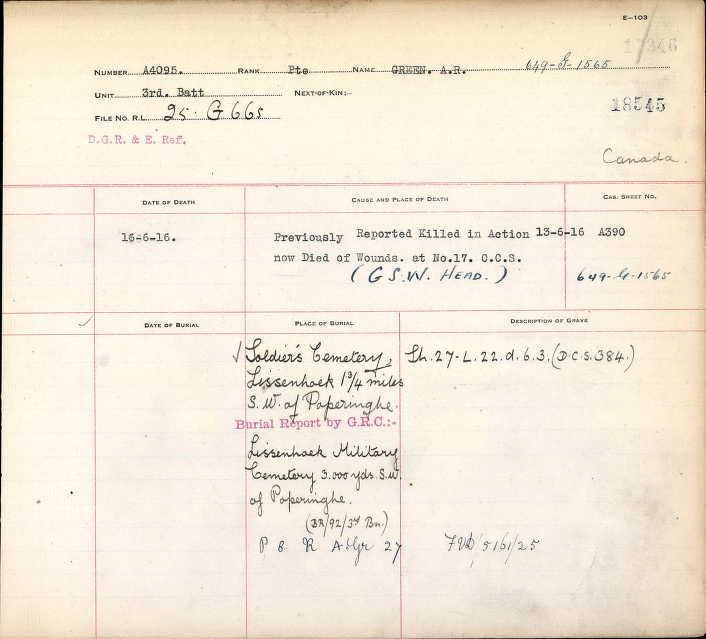 E-103
17346
NUMBER A4095. RANK Pte NAME GREEN. A.R. 649-G-1565
UNIT 3rd. Batt NEXT-OF-KIN:-
18545
FILE NO. R.L. 25. G 665
D.G.R. & E. Ref.
Canada.
DATE OF DEATH CAUSE AND PLACE OF DEATH CAS. SHEET NO.
16-6-16. Previously Reported Killed in Action 13-6-16 A390
now Died of Wounds. at No.17. C.C.S.
(G.S.W. HEAD.) 649-G-1565
DATE OF BURIAL PLACE OF BURIAL DESCRIPTION OF GRAVE
Soldier's Cemetery, Sh.27-L.22.d.6.3.(D.C.S.384.)
Lissenhoek 1¾ miles
S.W. of Poperinghe.
Burial Report by G.R.C.:-
Lissenhoek Military
Cemetery 3.000 yds S.W.
of Poperinghe.
(BR/92/3rd Bn.)
P 8 R 27